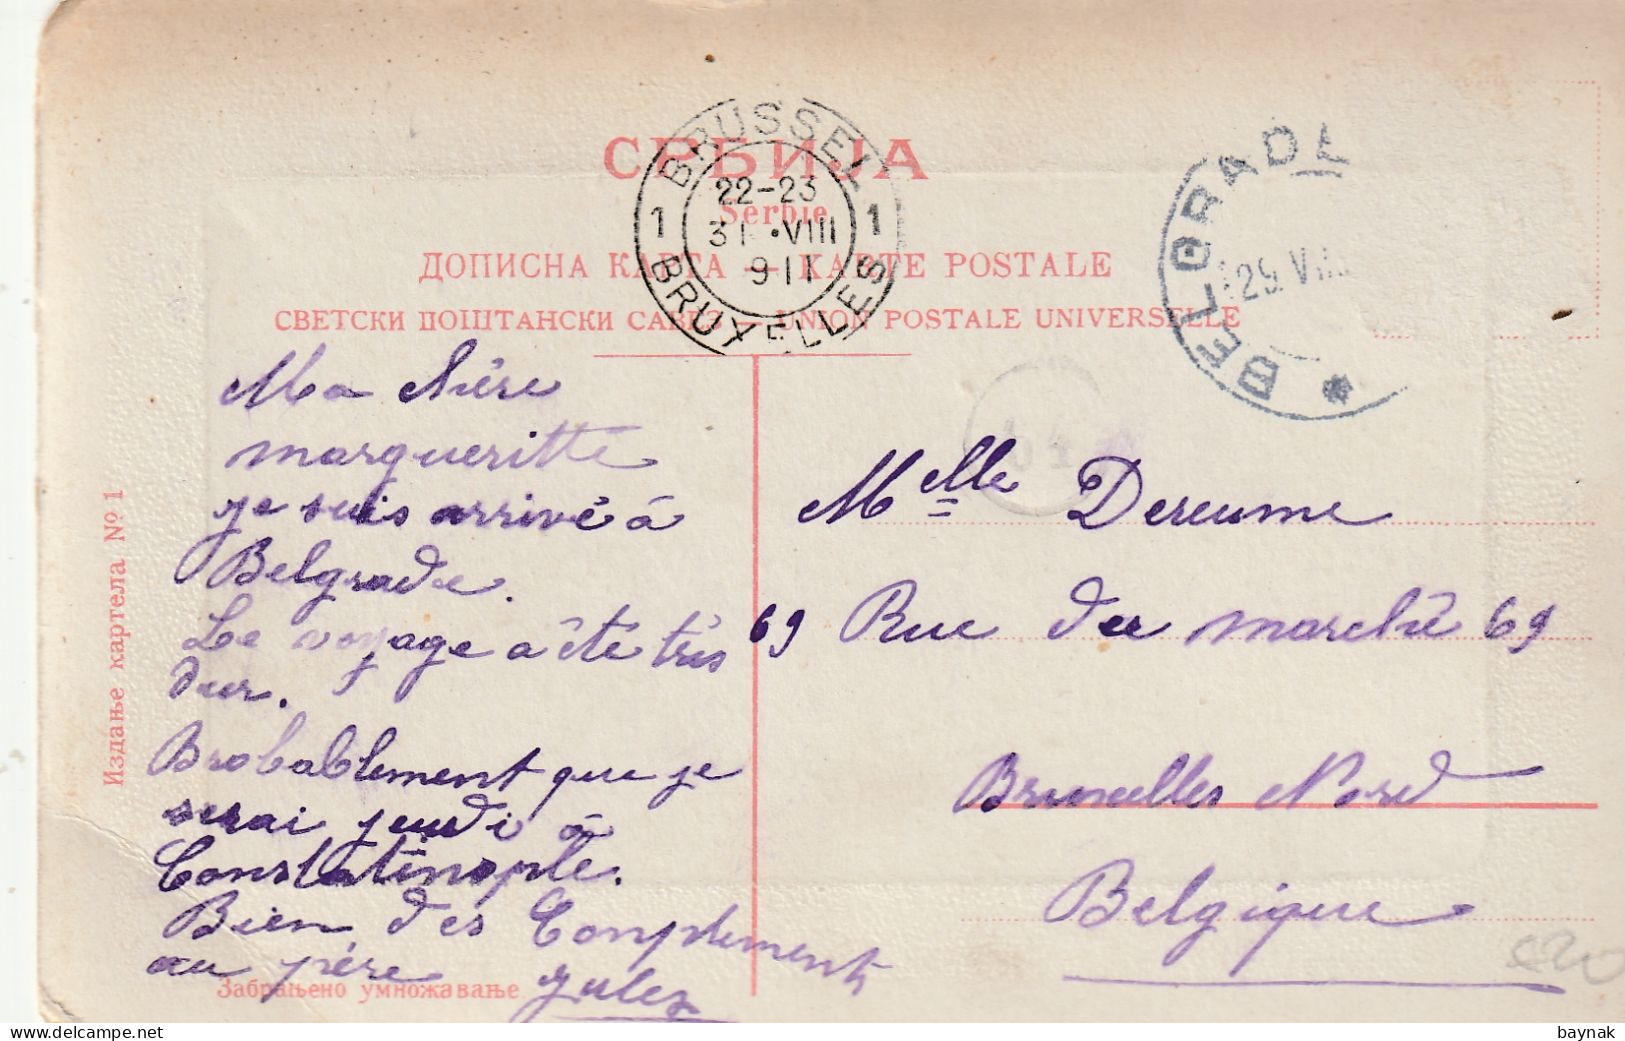 СРБИЈА
Serbie
ДОПИСНА КАРТА — KARTE POSTALE
СВЕТСКИ ПОШТАНСКИ САВЕЗ — UNION POSTALE UNIVERSELLE
BRUSSEL
1 22-23 1
31 •VIII
911
BRUXELLES
BELGRADE
29.VII
Издање картела № 1
Ma
margueritte
je suis arrivé à
Belgrade.
Le voyage a été très
dur.
Brobablement que je
serai jeudi à
Constatinople.
Bien des Complements
au père
Jules
Забрањено умножавање
Melle Dereume
69 Rue du marché 69
Bruxelles Nord
Belgique
baynak